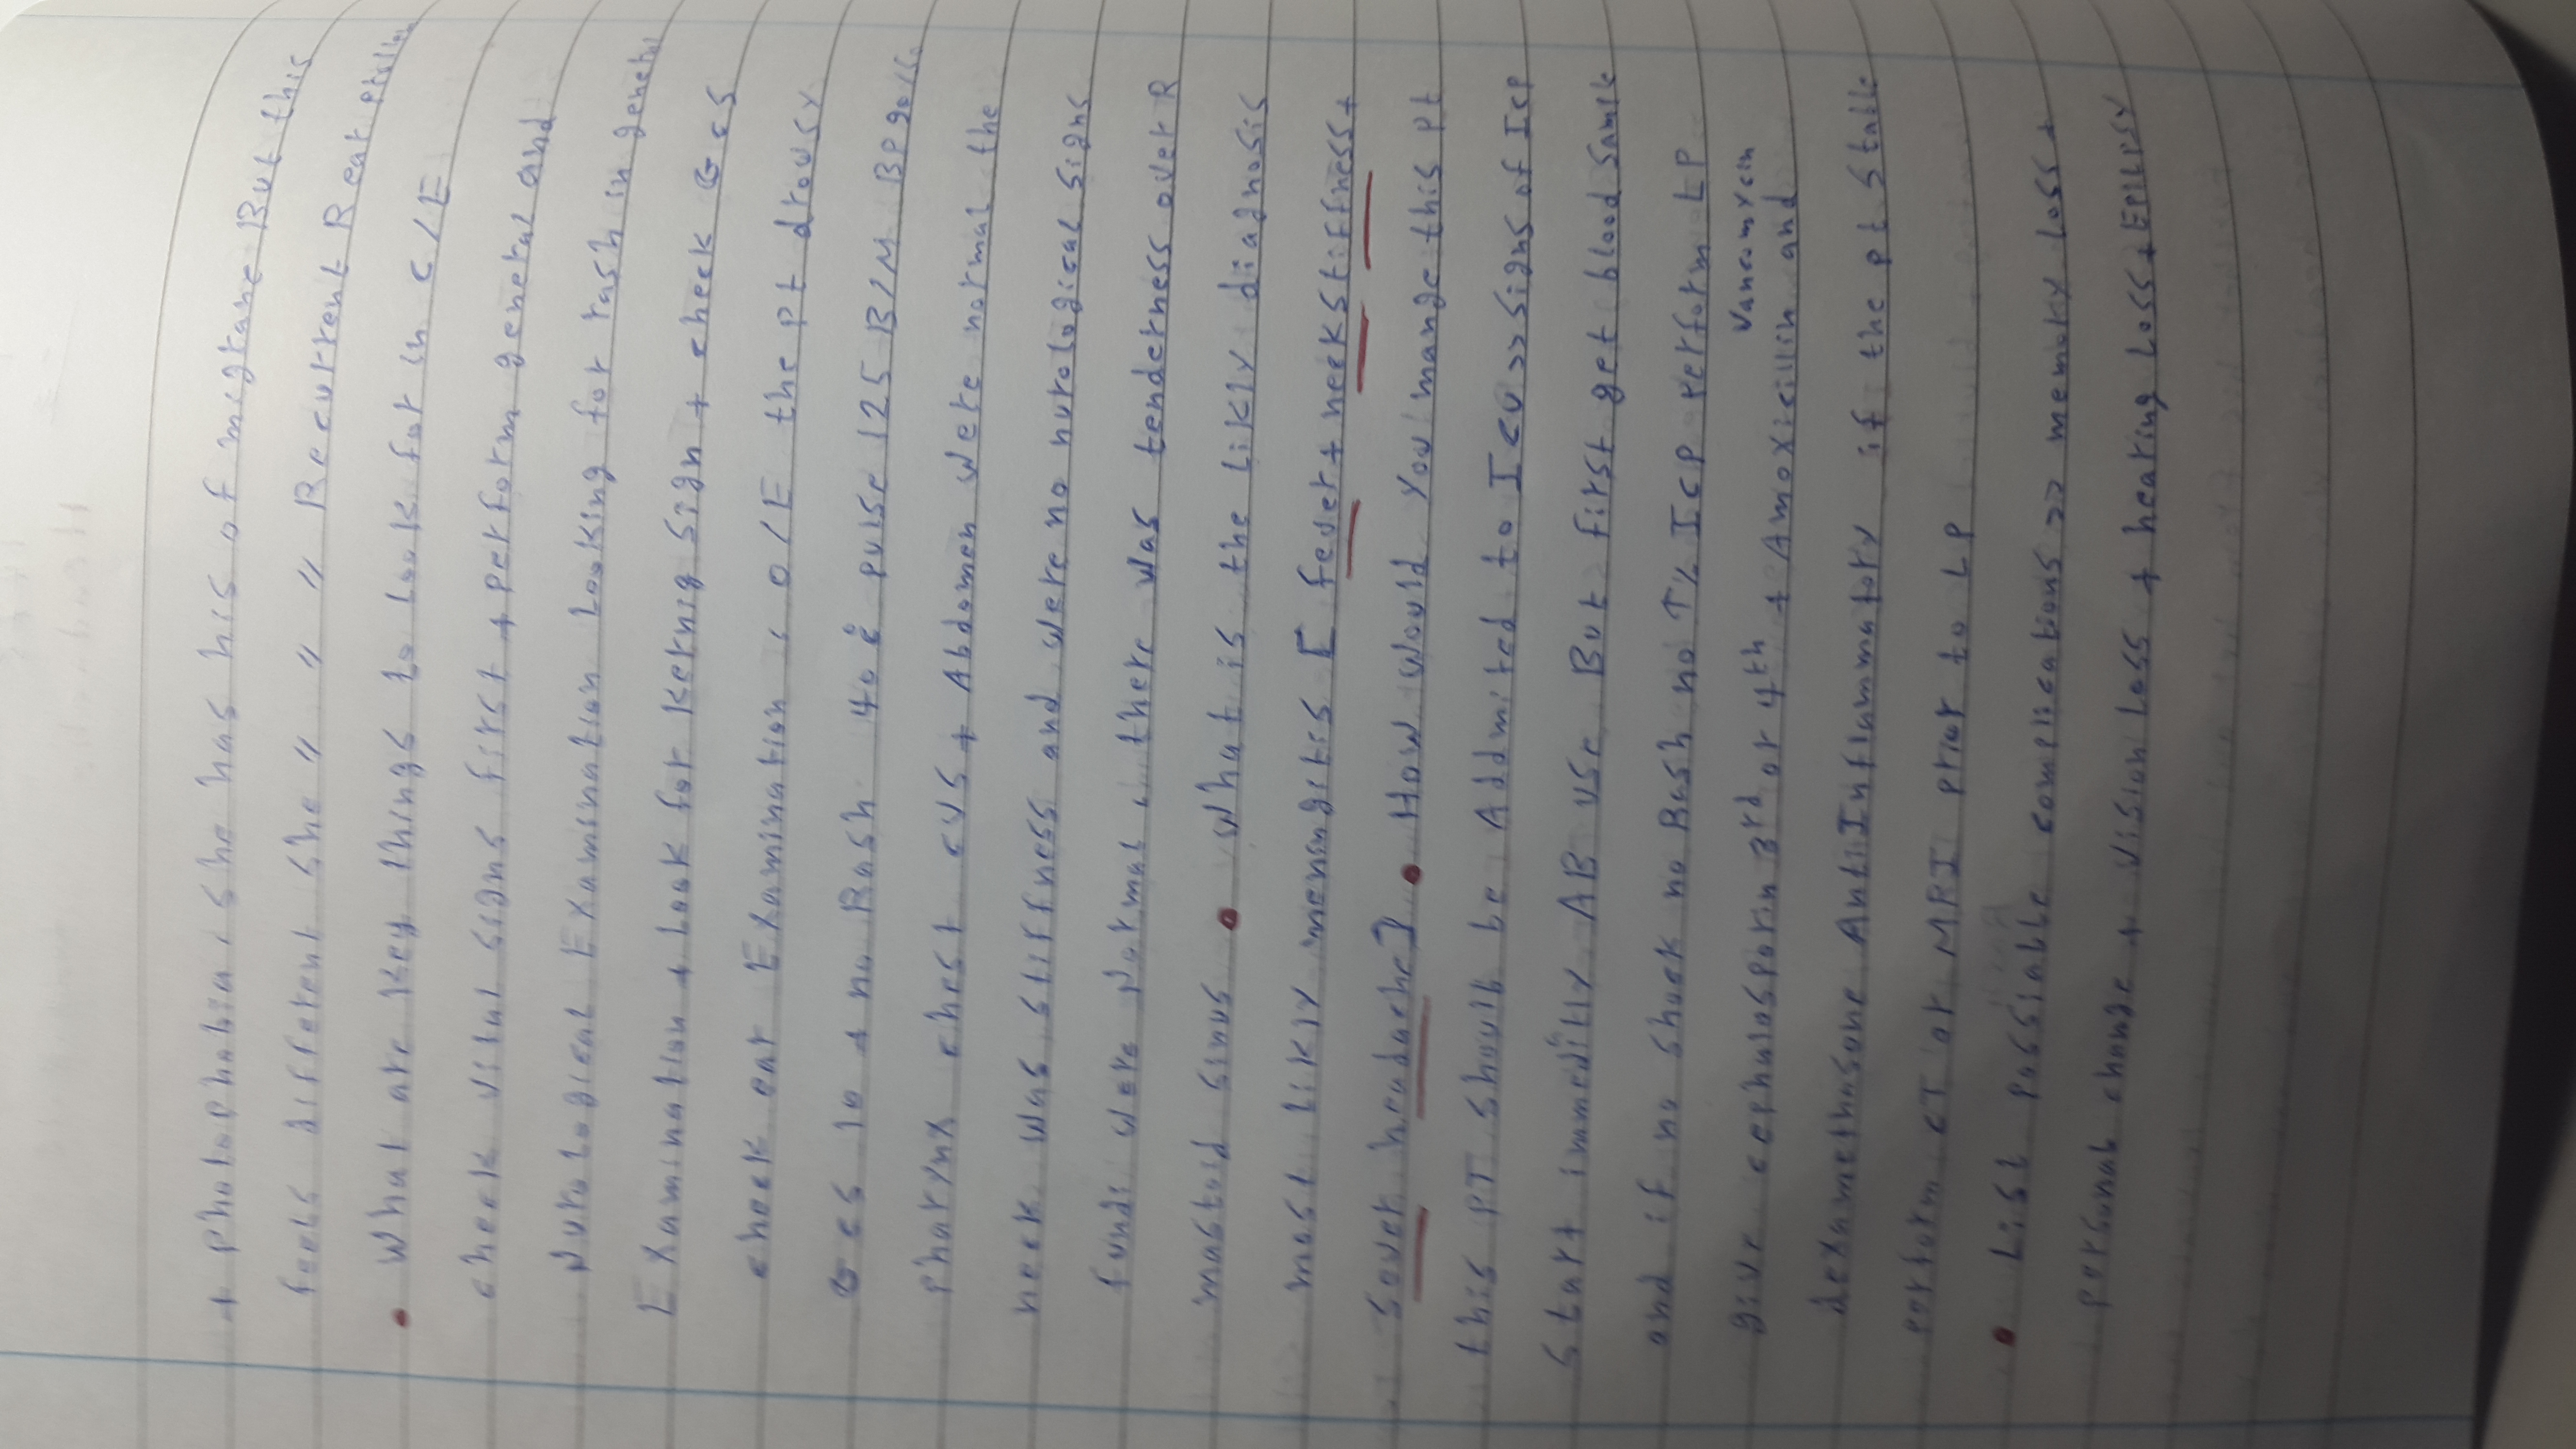 + Photophobia, she has his of migrane But this
feels different she " " " Recurrent R ear
• What are key things to Look for in c/E
cheek vital signs first + perform general and
Nurological Examination Looking for rash in general
Examination + Look for kernig sign + cheek Gcs
cheek ear Examination, o/E the pt drousy
Gcs 10 + no Rash 40c̊ pulse 125 B/M BP 90/60
pharynx chest cvs + Abdomen were normal the
neek was stiffness and were no nurological signs
fundi were Normal, there was tenderness over R
mastoid sinus • What is the likly diagnosis
most likly menangitis [ fever + neekstiffness +
sever headache] • How would you mange this pt
this PT should be Addmited to Icu >> signs of Icp
start immeditly AB use But first get blood sample
and if no shock no Rash no ↑% Icp perform LP
give cephalosporin 3rd or 4th + Amoxicillin and
Vancomycin
dexamethasone AntiInflammatory if the pt stable
perform cT or MRI prior to LP
• List possiable complications >> memory loss +
personal change + vision loss + hearing Loss + Epilipsy